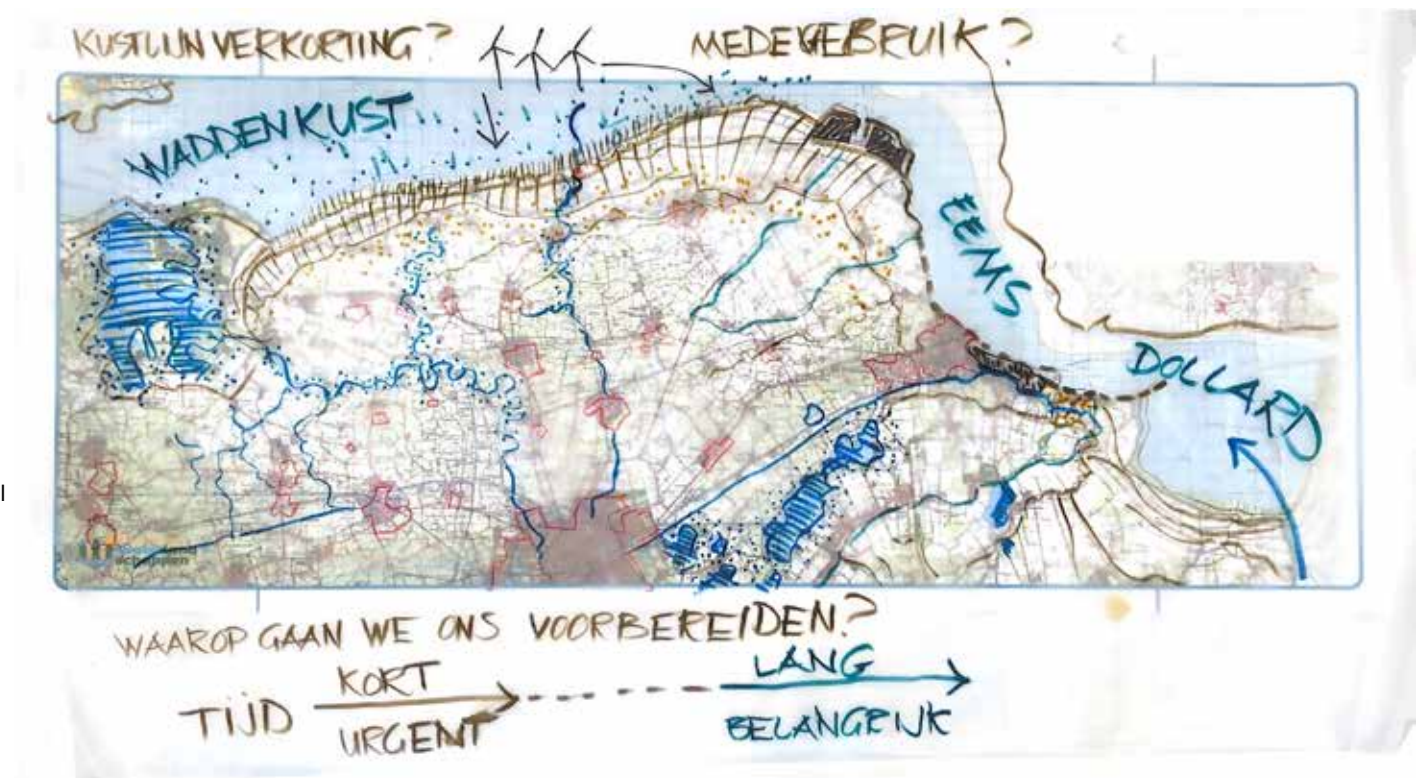 KUSTLIJNVERKORTING?
MEDEGEBRUIK?
WADDENKUST
EEMS
DOLLARD
WAAROP GAAN WE ONS VOORBEREIDEN?
TIJD
KORT
URGENT
LANG
BELANGRIJK